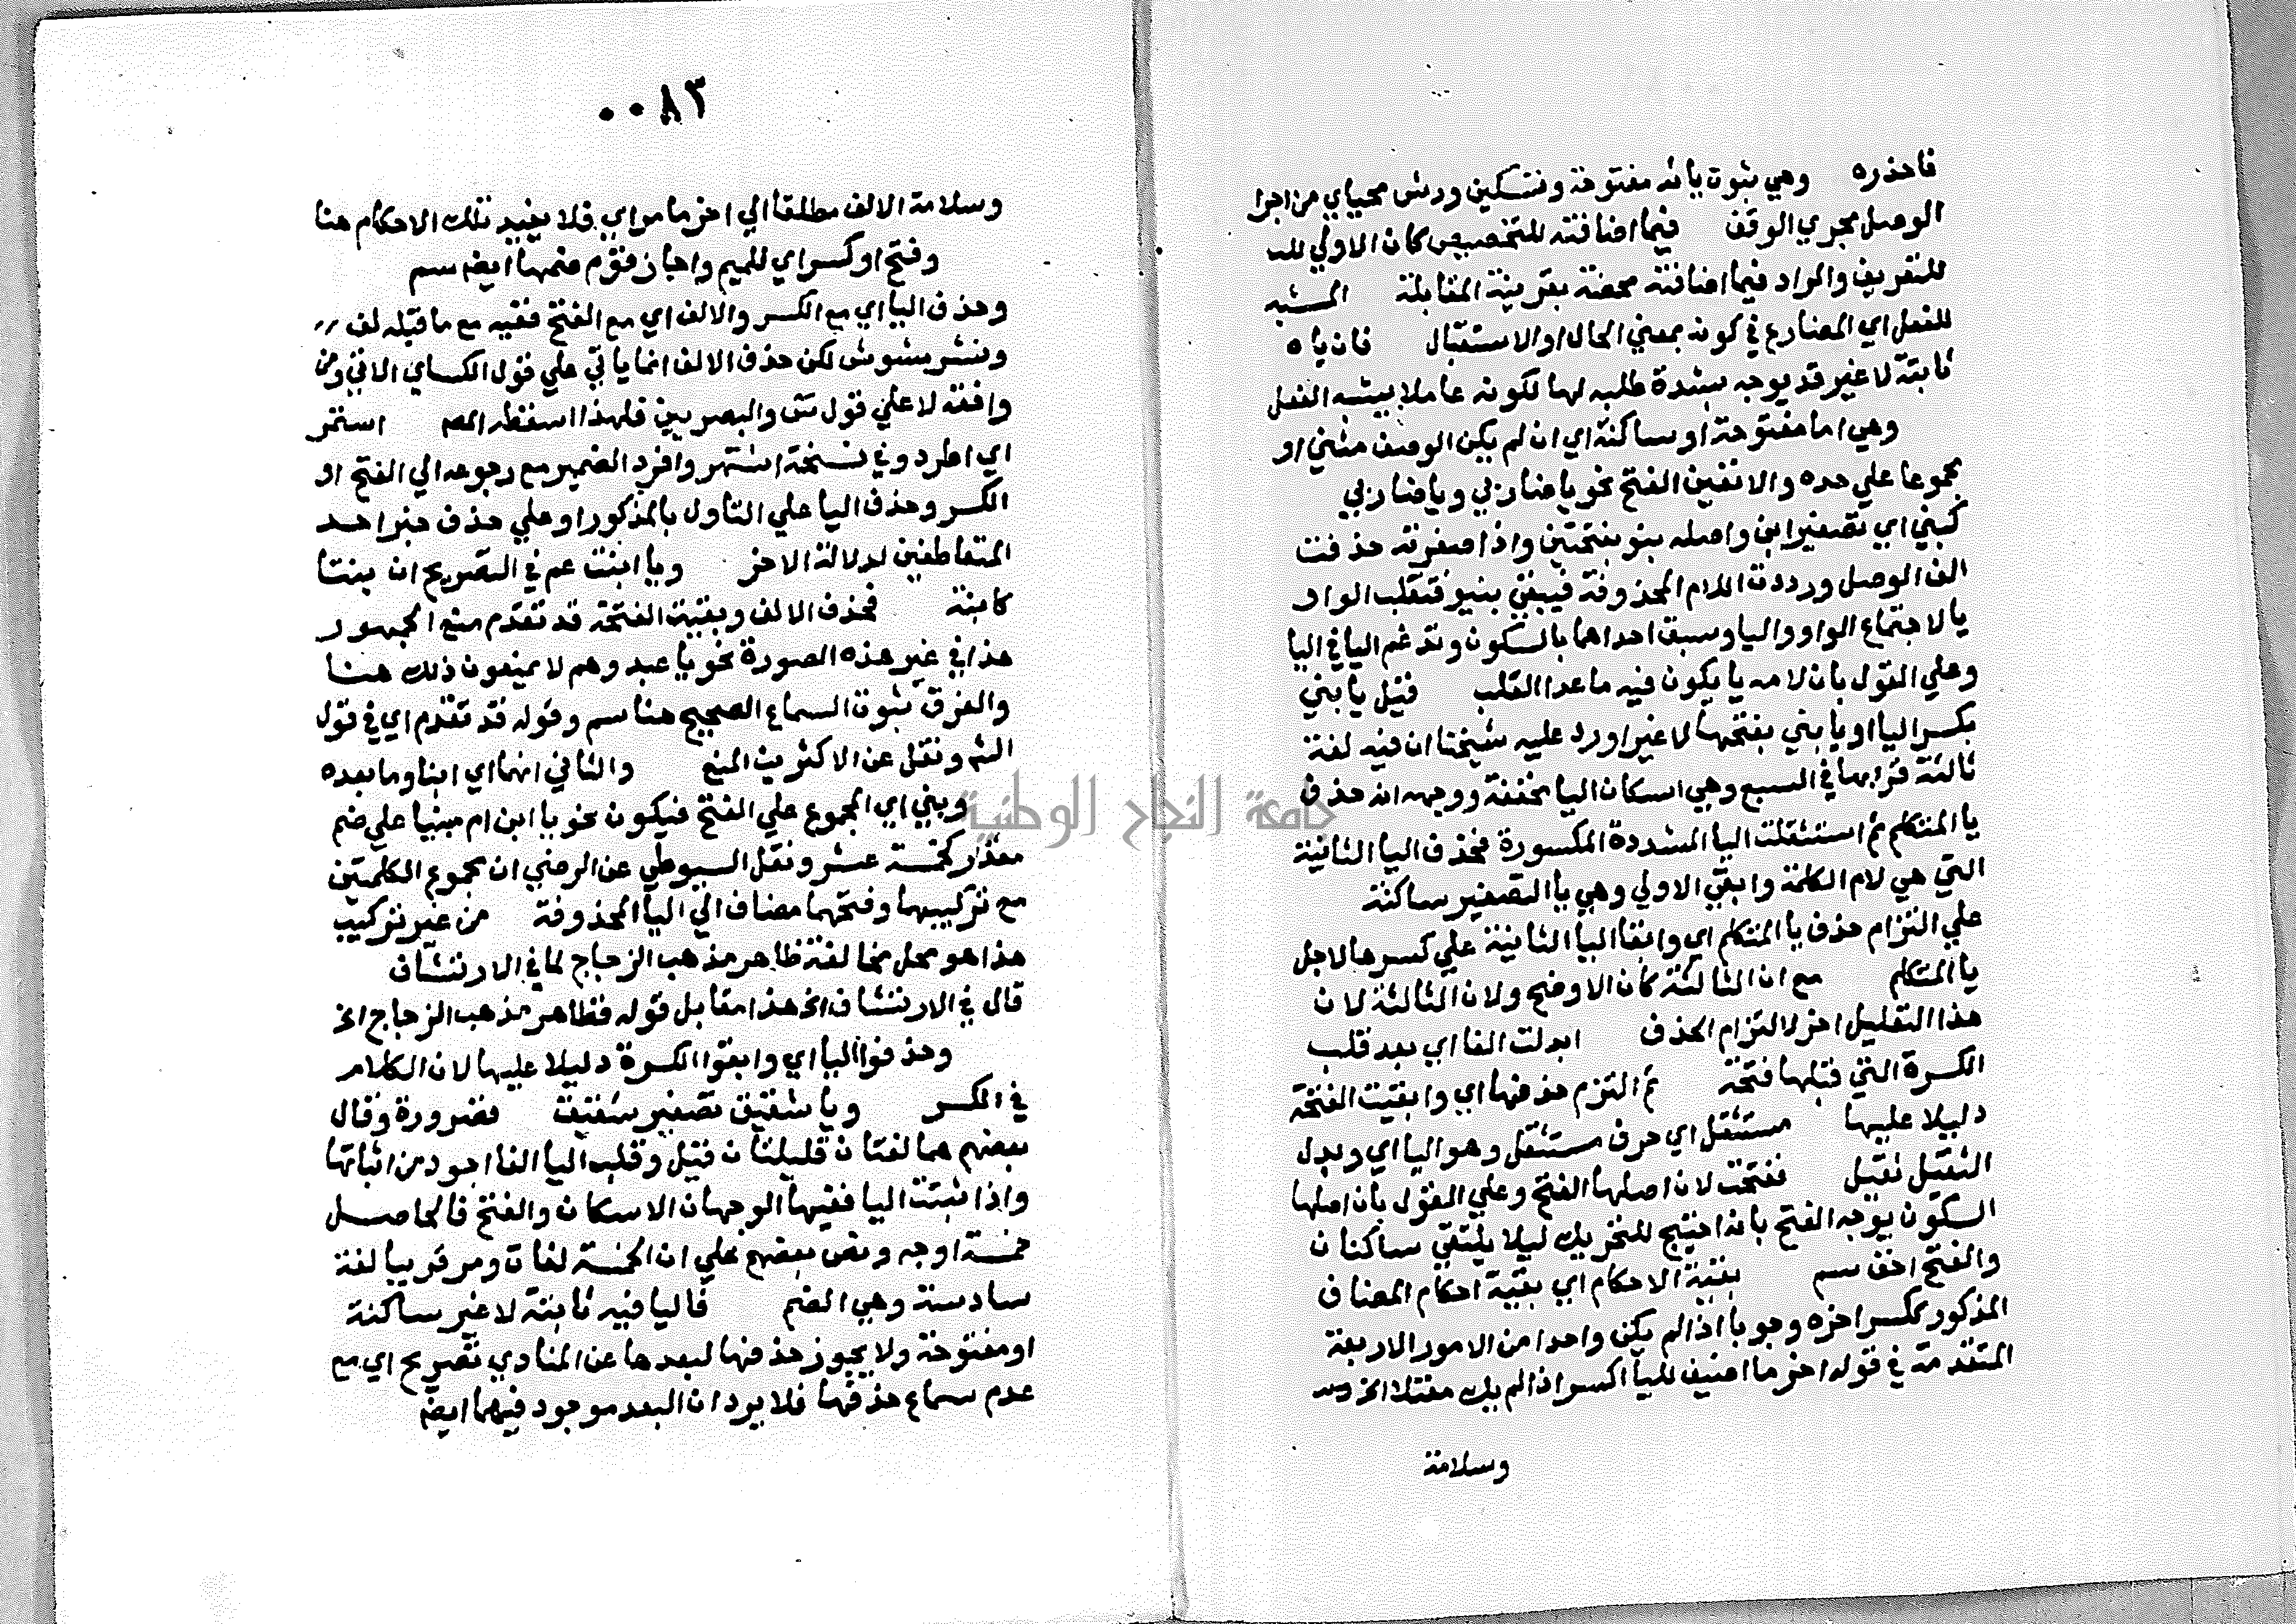 فاحذره وهي ثبوت يائه مفتوحة وتسكين ورش محياي من اجرا
الوصل مجري الوقف فيما اضافته للتخصيص كان الاولي للـ
للتعريف والمراد فيما اضافته محضة بقرينة المقابلة المشبه
للفعل اي المضارع في كونه بمعني الحال او الاستقبال فان ياه
ثابتة لا غير قد يوجه بشدة طلبه لها لكونه عاملا يشبه الفعل
وهي اما مفتوحة او ساكنة اي ان لم يكن الوصف مثني او
مجموعا علي حده والا تعين الفتح نحو يا ضاربي ويا ضاربي
كبني اي تصغير ابن واصله بنو بفتحتين واذا صغرته حذفت
الف الوصل ورددت اللام المحذوفة فيبقي بنيو فتقلب الواو
يا لاجتماع الواو واليا وسبق احداهما بالسكون وتدغم اليا في اليا
وعلي القول بان لامه يا يكون فيه ما عدا القلب قيل يا بني
بكسر اليا او يا بني بفتحها لا غير اورد عليه شيخنا ان فيه لغة
ثالثة قرا بها في السبع وهي اسكان اليا مخففة ووجهه انه حذف
يا المتكلم ثم استثقلت اليا المشددة المكسورة فحذف اليا الثانية
التي هي لام الكلمة وابقي الاولي وهي يا التصغير ساكنة
علي التزام حذف يا المتكلم اي وابقا اليا الثانية علي كسرها لاجل
يا المتكلم مع ان الثالثة كان الاوضح ولان الثالثة لان
هذا التعليل اخر لالتزام الحذف ابدلت الفا اي بعد قلب
الكسرة التي قبلها فتحة ثم التزم حذفها اي وابقيت الفتحة
دليلا عليها مستثقل اي حرف مستثقل وهو اليا اي وبدل
الثقيل ثقيل ففتحت لان اصلها الفتح وعلي القول بان اصلها
السكون يوجه الفتح بانه احتيج للتحريك ليلا يلتقي ساكنان
والفتح اخف سم بقية الاحكام اي بقية احكام المضاف
المذكور ككسر اخره وجوبا اذا لم يكن واحدا من الامور الاربعة
المتقدمة في قوله اخر ما اضيف لليا اكسر اذا لم يك معتلا الخ
وسلامة
٠٠٨٣
وسلامة الالف مطلقا الي اخر ما مر اي فلا يفيد تلك الاحكام هنا
وفتح او كسر اي للميم واجاز قوم ضمها ايضا سم
وحذف اليا اي مع الكسر والالف اي مع الفتح ففيه مع ما قبله لف
ونشر مشوش لكن حذف الالف انما ياتي علي قول الكساي الاتي ومن
وافقه لا علي قول س والبصريين فلهذا اسقطه المص استمر
اي اطرد وفي نسخة اشتهر وافرد الضمير مع رجوعه الي الفتح او
الكسر وحذف اليا علي التاول بالمذكور او علي حذف خبر احد
المتعاطفين لدلالة الاخر ويا ابنت عم في التصريح ان بنتا
كابنة فحذف الالف وبقيت الفتحة قد تقدم منع الجمهور
هذا في غير هذه الصورة نحو يا عبد وهم لا يمنعون ذلك هنا
والفرق ثبوت السماع الصحيح هنا سم وقوله قد تقدم اي في قول
الش ونقل عن الاكثرين المنع والثاني انهما اي ابنا وما بعده
وبني اي المجموع علي الفتح فيكون نحو يا ابن ام مبنيا علي ضم
مقدر كخمسة عشر ونقل السيوطي عن الرضي ان مجموع الكلمتين
مع تركيبهما وفتحهما مضاف الي اليا المحذوفة من غير تركيب
هذا هو محل مخالفة ظاهر مذهب الزجاج لما في الارتشاف
قال في الارتشاف الخ هذا مقابل قوله فظاهر مذهب الزجاج الخ
وحذفوا اليا اي وابقوا الكسرة دليلا عليها لان الكلام
في الكسر ويا شقيق تصغير شقيق فضرورة وقال
بعضهم هما لغتان قليلتان قيل وقلب اليا الفا اجود من اثباتها
واذا ثبتت اليا ففيها الوجهان الاسكان والفتح فالحاصل
خمسة اوجه ونص بعضهم علي ان الخمسة لغات ومر قريبا لغة
سادسة وهي الضم فاليا فيه ثابتة لا غير ساكنة
او مفتوحة ولا يجوز حذفها لبعدها عن المنادي تصريح اي مع
عدم سماع حذفها فلا يرد ان البعد موجود فيهما ايضا
جامعة النجاح الوطنية